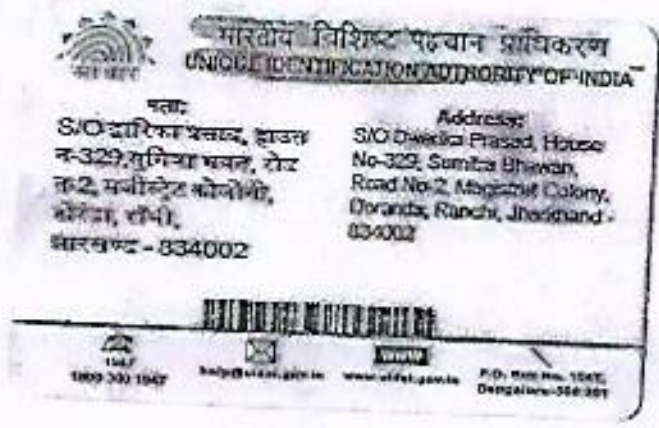 भारतीय विशिष्ट पहचान प्राधिकरण
UNIQUE IDENTIFICATION AUTHORITY OF INDIA
आधार
पता:
S/O द्वारिका प्रसाद, हाउस
न-329, सुमित्रा भवन, रोड
न-2, मजीस्ट्रेट कोलोनी,
डोरंडा, राँची,
झारखण्ड - 834002
Address:
S/O Dwarika Prasad, House
No-329, Sumitra Bhawan,
Road No-2, Magistrat Colony,
Doranda, Ranchi, Jharkhand -
834002
1947
1800 300 1947
help@uidai.gov.in
www
www.uidai.gov.in
P.O. Box No. 1947,
Bengaluru-560 001